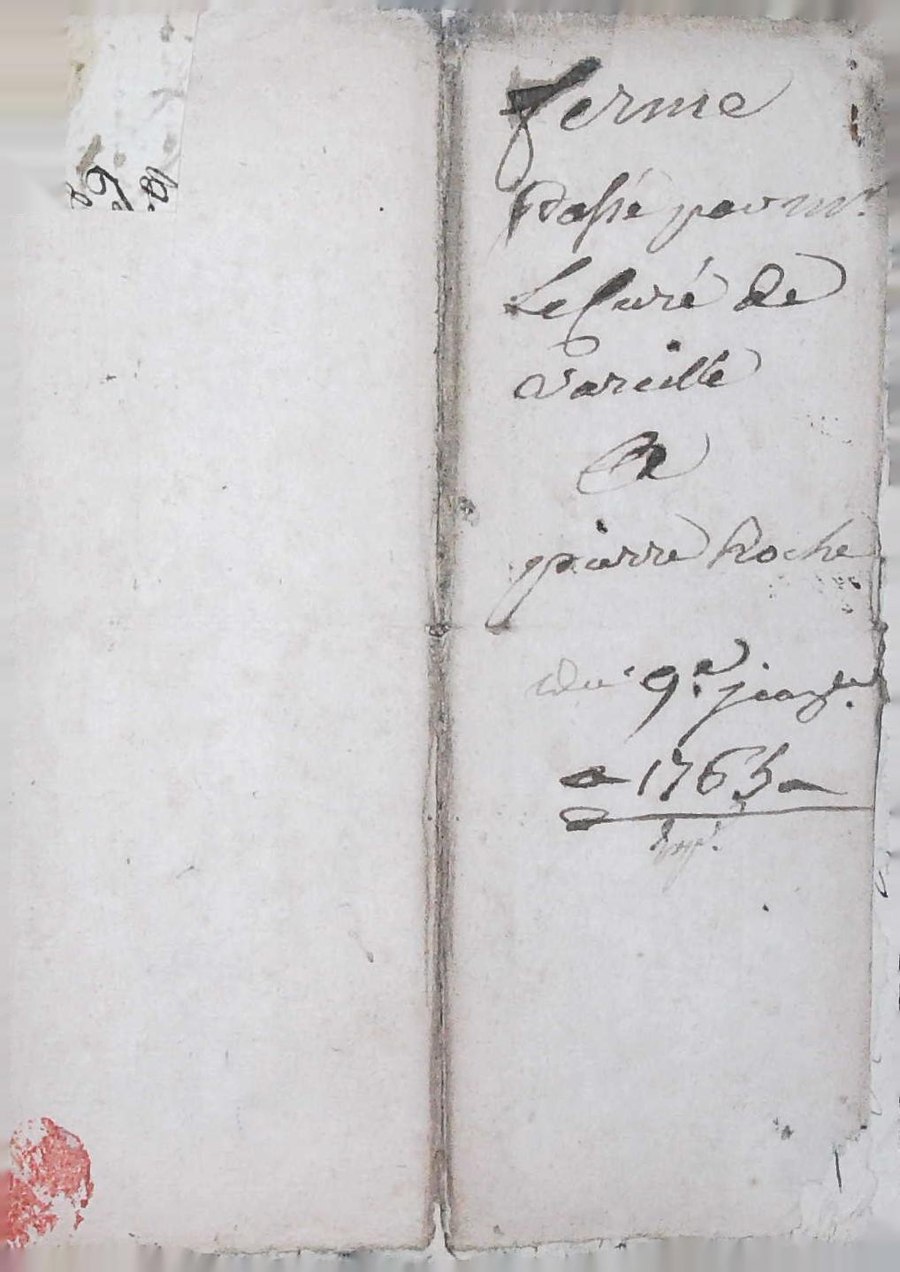 ferme
passé par mr.
Le Curé de
Vareille
a
pierre Roche
du 9e. janv.
1765